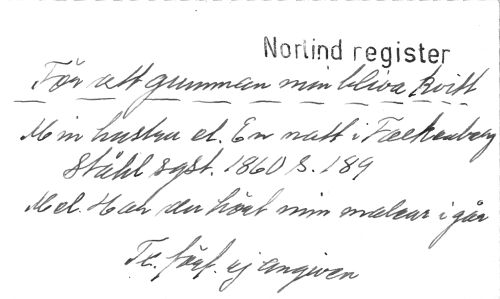 Norlind register
För att gumman min bliva kvitt
Min hustru el. En natt i Falkenberg
Ståhl sgst. 1860 s. 189
Mel. Har du hört min malear i går
Tc. förf. ej angiven